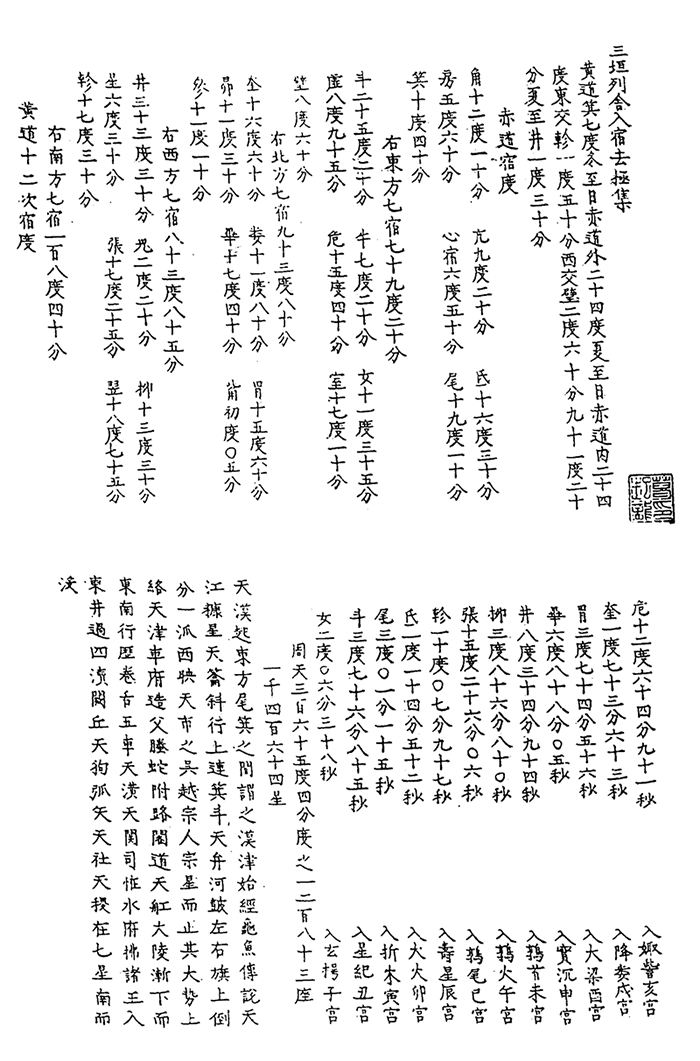 三垣列舍入宿去極集
黃道箕七度冬至日赤道外二十四度夏至日赤道內二十四
度東交軫一度五十分西交壁二度六十分九十一度二十
分夏至井一度三十分
赤道宿度
角十二度一十分 亢九度二十分 氐十六度三十分
房五度六十分 心宿六度五十分 尾十九度一十分
箕十度四十分
右東方七宿七十九度二十分
斗二十五度二十分 牛七度二十分 女十一度三十五分
虛八度九十五分 危十五度四十分 室十七度一十分
壁八度六十分
右北方七宿九十三度八十分
奎十六度六十分 婁十一度八十分 胃十五度六十分
昴十一度三十分 畢十七度四十分 觜初度〇五分
參十一度一十分
右西方七宿八十三度八十五分
井三十三度三十分 鬼二度二十分 柳十三度三十分
星六度三十分 張十七度二十五分 翌十八度七十五分
軫十七度三十分
右南方七宿一百八度四十分
黃道十二次宿度
危十二度六十四分九十一秒 入娵訾亥宮
奎一度七十三分六十三秒 入降婁戌宮
胃三度七十四分五十六秒 入大梁酉宮
畢六度八十八分〇五秒 入實沉申宮
井八度三十四分九十四秒 入鶉首未宮
柳三度八十六分八十〇秒 入鶉火午宮
張十五度二十六分〇六秒 入鶉尾巳宮
軫一十度〇七分九十七秒 入壽星辰宮
氐一度一十四分五十二秒 入大火卯宮
尾三度〇一分一十五秒 入折木寅宮
斗三度七十六分八十五秒 入星紀丑宮
女二度〇六分三十八秒 入玄枵子宮
周天三百六十五度四分度之一二百八十三座
一千四百六十四星
天漢起東方尾箕之間謂之漢津始經龜魚傅說天
江糠星天籥斜行上連箕斗天弁河鼓左右旗上倒
分一派西映天市之吳越宗人宗星而止其大勢上
絡天津車府造父騰蛇附路閣道天舡大陵漸下而
東南行歷卷舌五車天潢天関司怪水府拂諸王入
東井過四瀆闕丘天狗弧矢天社天稷在七星南而
沒